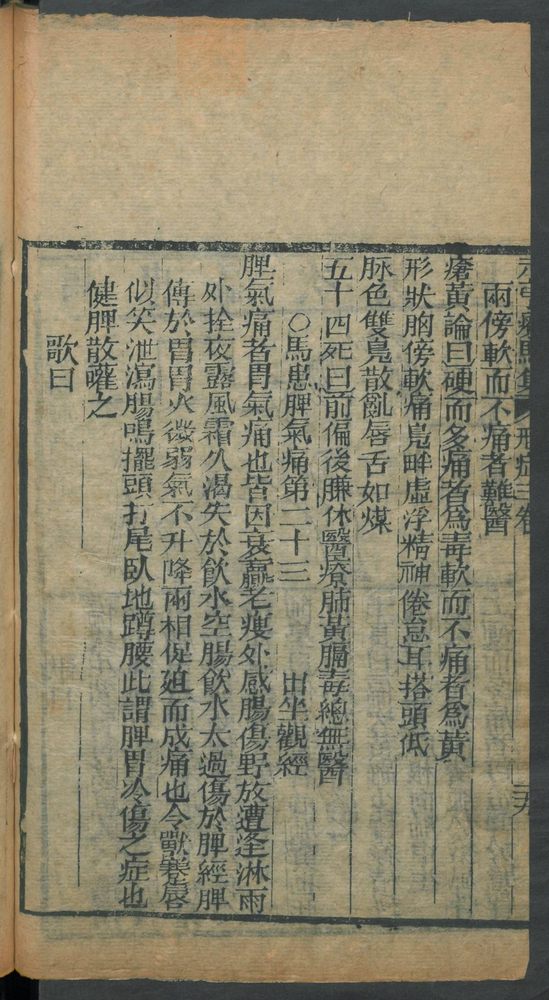 元亨療馬集 形症三卷 三六
兩傍軟而不痛者難醫
瘡黃論曰硬而多痛者爲毒軟而不痛者爲黃
形狀胸傍軟痛鼻畔虛浮精神倦怠耳搭頭低
脉色雙鳧散亂唇舌如煤
五十四死曰前偏後臁休醫療肺黃膈毒總無醫
○馬患脾氣痛第二十三 出坐觀經
脾氣痛者胃氣痛也皆因衰羸老瘦外感腸傷野放遭逢淋雨
外拴夜露風霜久渴失於飲水空腸飲水太過傷於脾經脾
傳於胃胃火微弱氣不升降兩相促廹而成痛也令獸蹇唇
似笑泄瀉腸鳴擺頭打尾臥地蹲腰此謂脾胃冷傷之症也
健脾散嚾之
歌曰